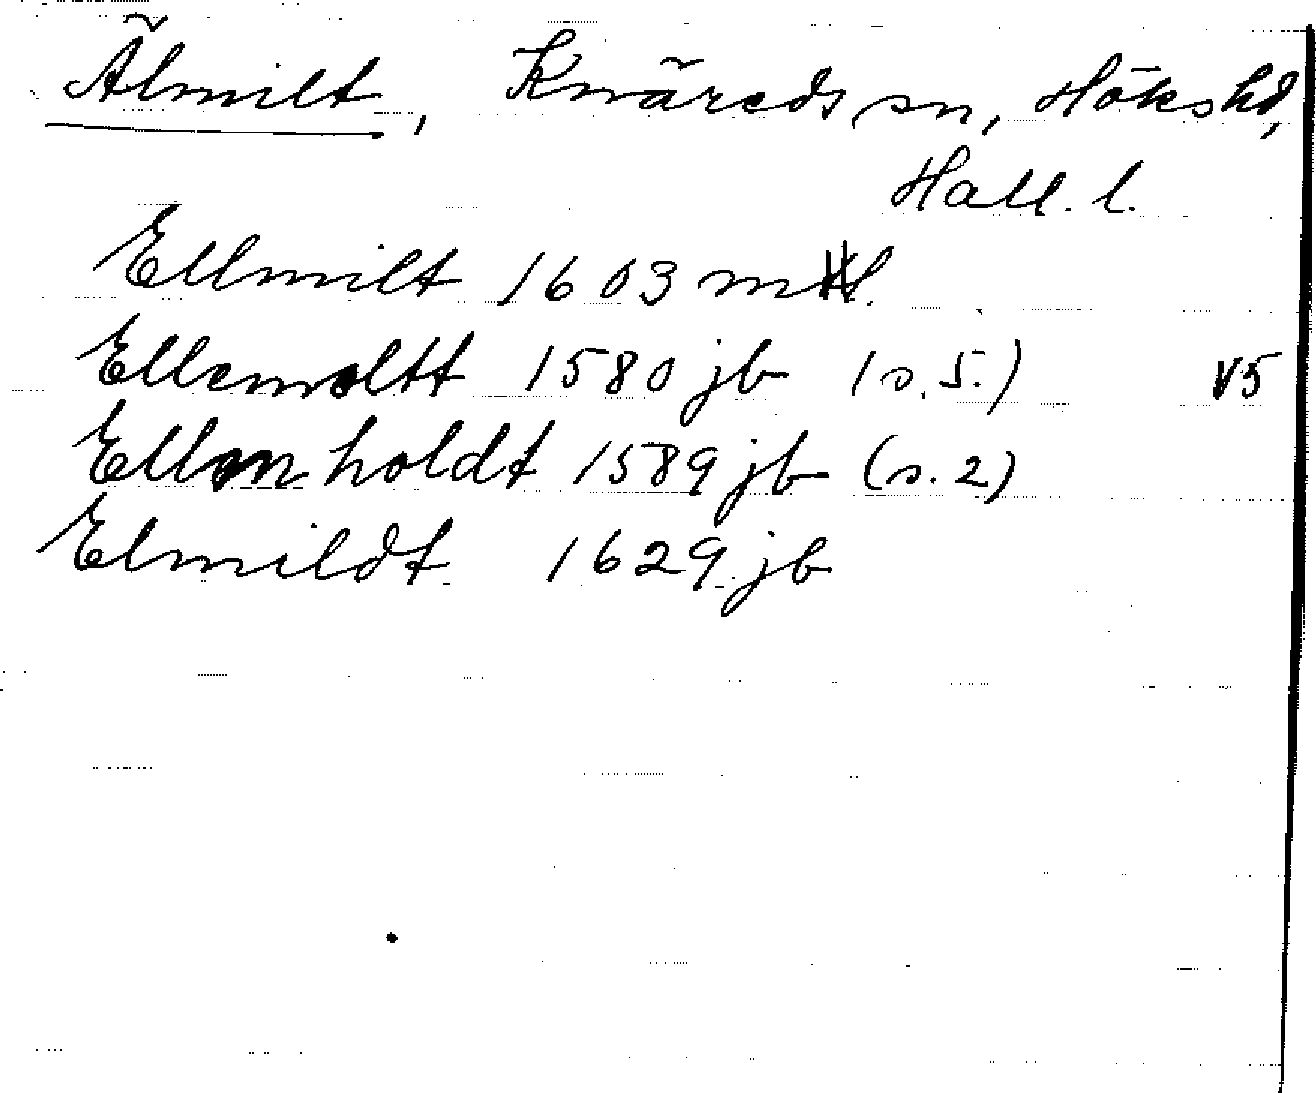 Älmilt, Knäreds sn, Höks hd,
Hall. l.
Ellmilt 1603 mtl.
Ellemoltt 1580 jb (s. 5.) v5
Ellenholdt 1589 jb (s. 2)
Elmildt 1629 jb